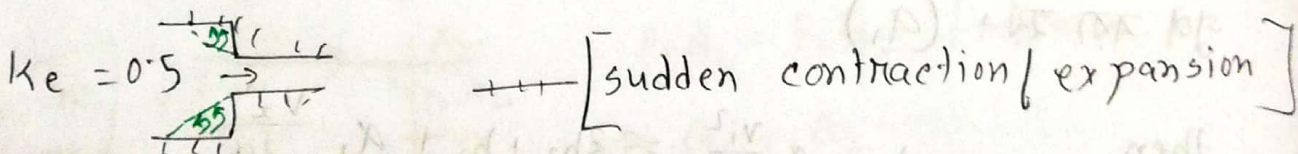 Ke = 0.5 → [sudden contraction / expansion]